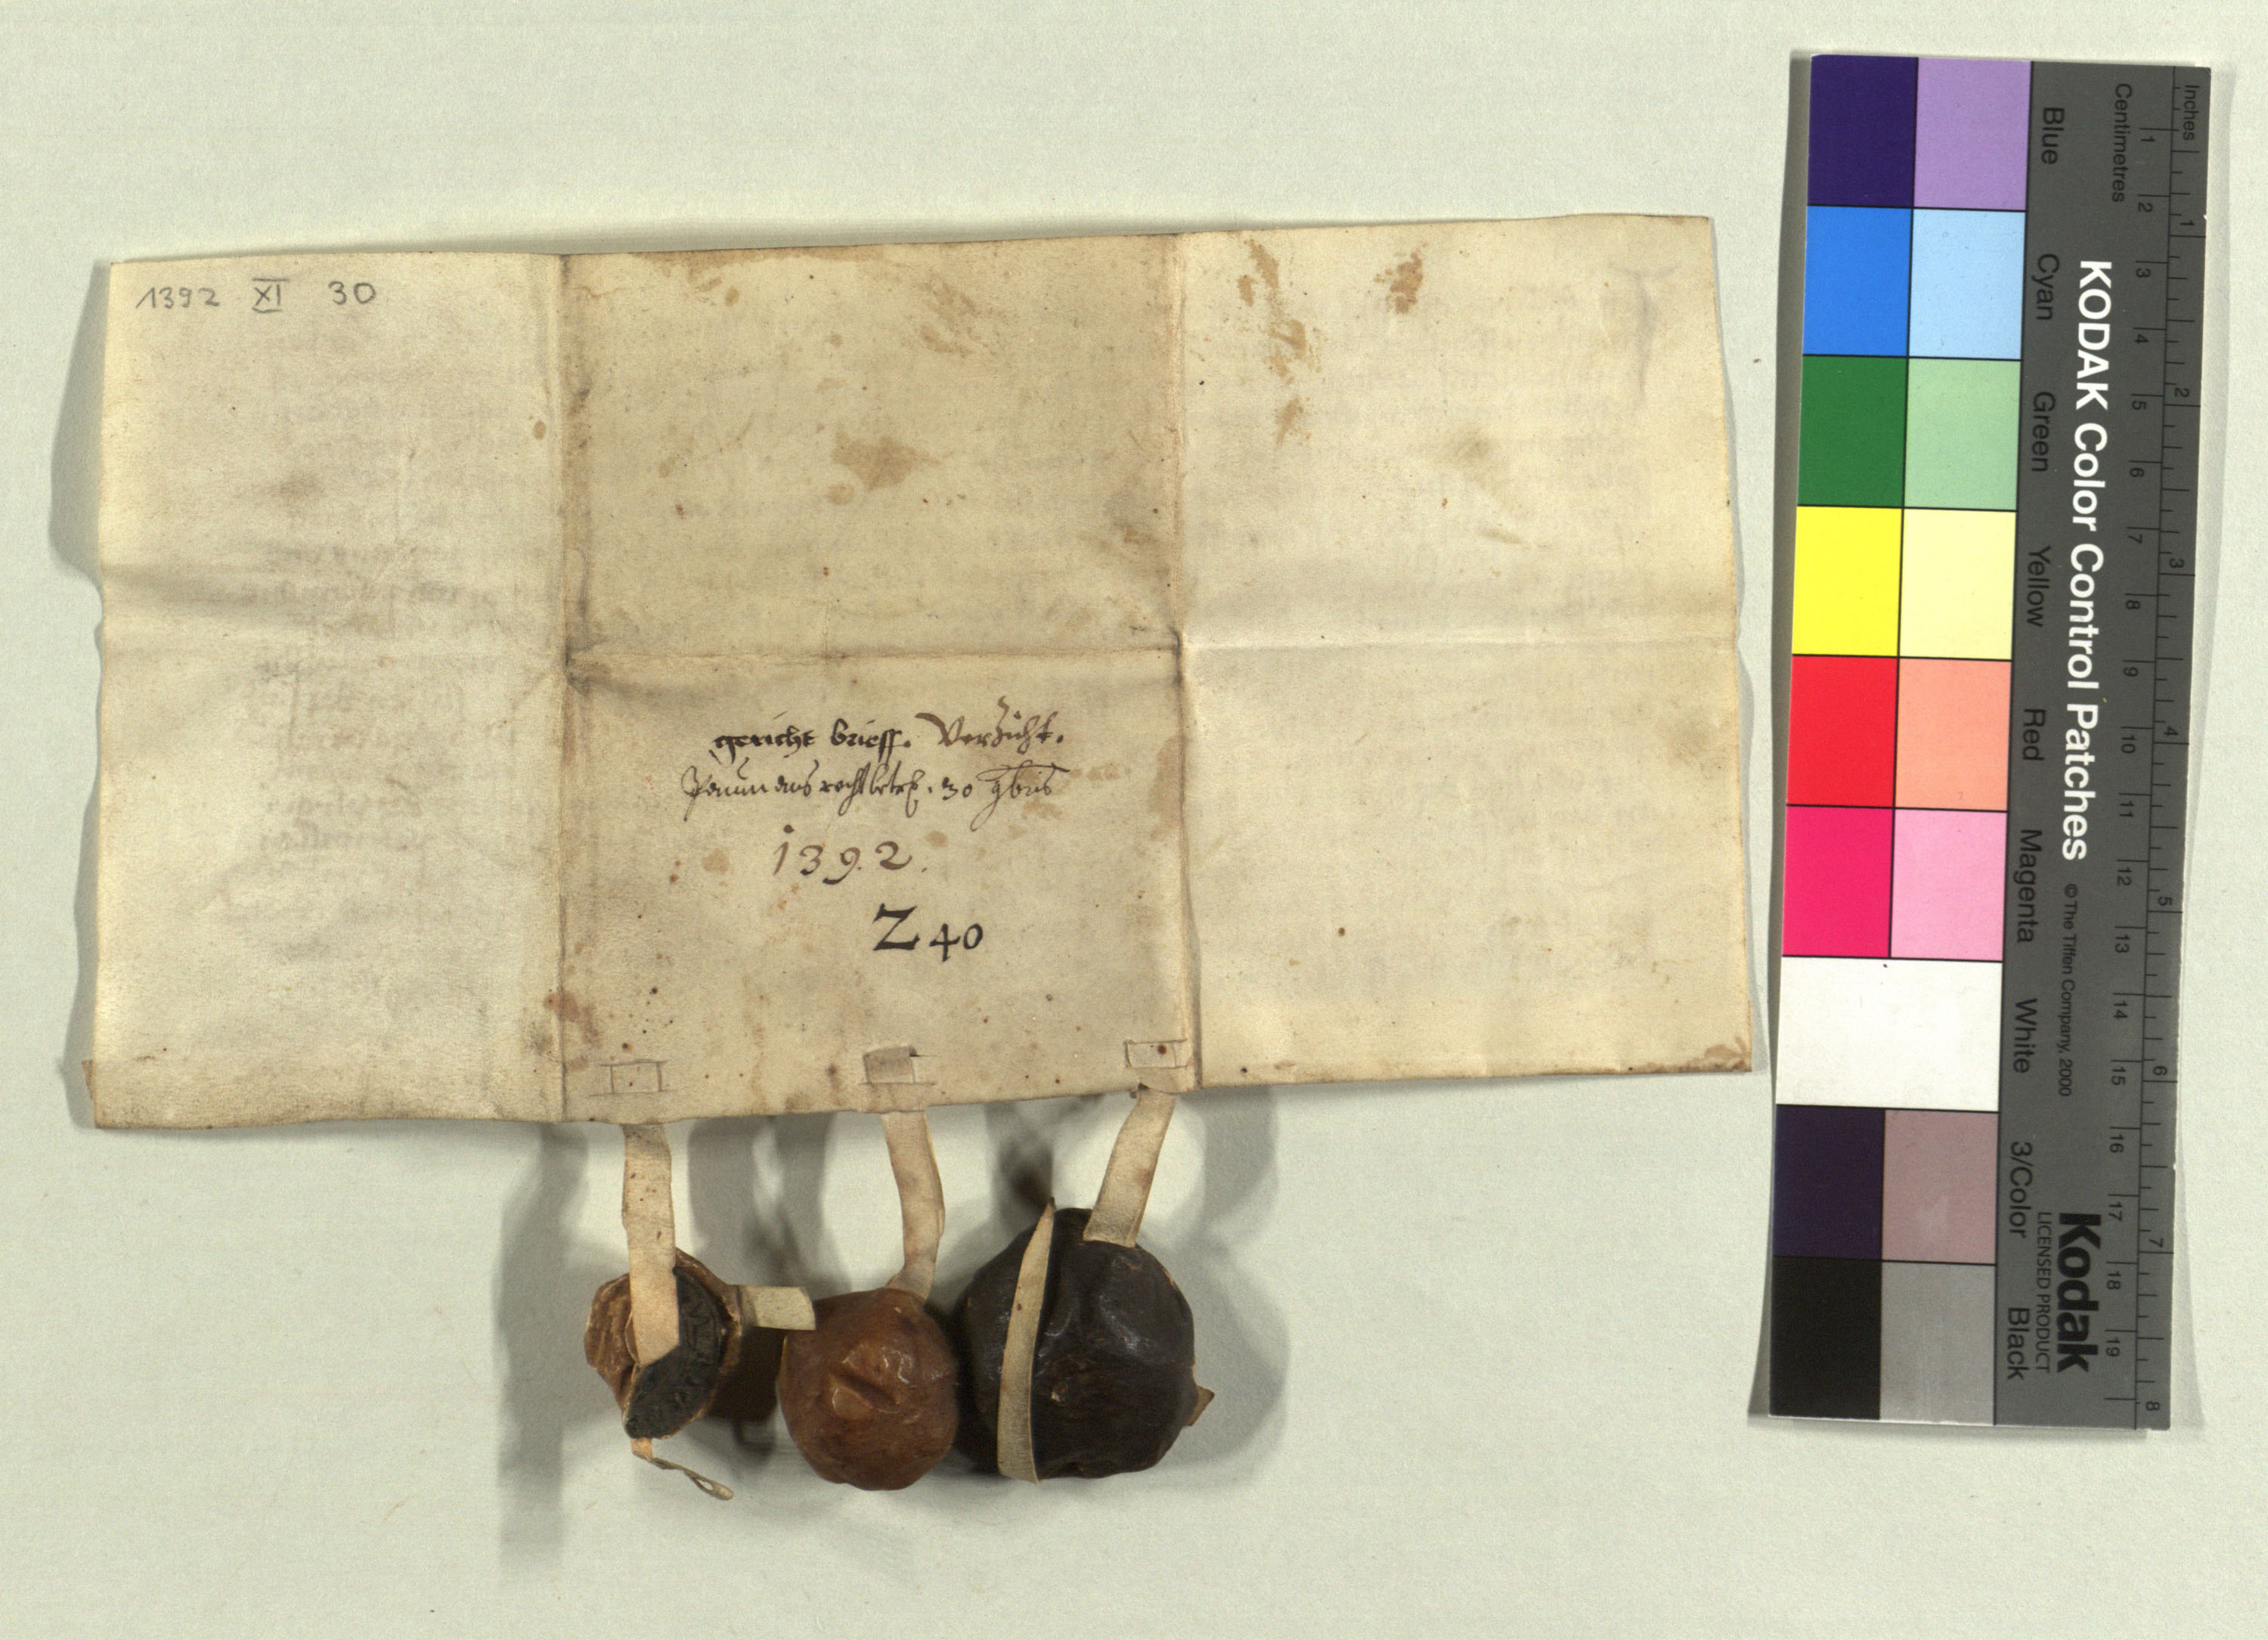 1392 XI 30
gericht brieff. Verzicht.
30 9bris
1392.
Z 40
Inches
Centimetres
1 2 3 4 5 6 7 8 9 10 11 12 13 14 15 16 17 18 19
1 2 3 4 5 6 7 8
KODAK Color Control Patches
© The Tiffen Company, 2000
Kodak
LICENSED PRODUCT
Blue Cyan Green Yellow Red Magenta White 3/Color Black